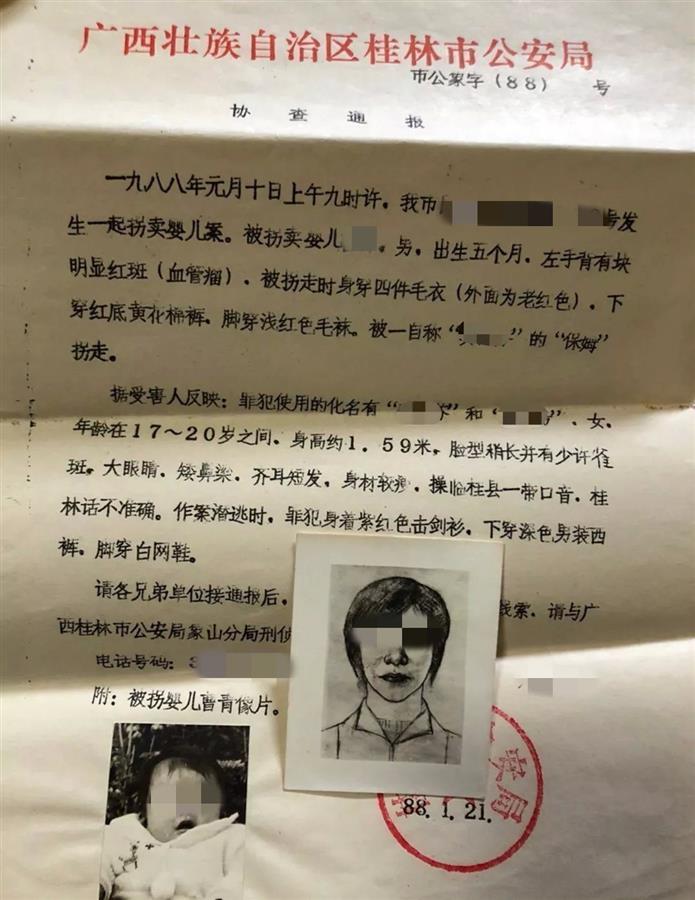 广西壮族自治区桂林市公安局
市公象字（88） 号
协查通报
一九八八年元月十日上午九时许，我市 号发
生一起拐卖婴儿案。被拐卖婴儿 ，男，出生五个月，左手背有块
明显红斑（血管瘤），被拐走时身穿四件毛衣（外面为老红色），下
穿红底黄花棉裤，脚穿浅红色毛袜。被一自称“ ”的“保姆”
拐走。
据受害人反映：罪犯使用的化名有“ ”和“ ”，女，
年龄在17～20岁之间，身高约1.59米，脸型稍长并有少许雀
斑，大眼睛，矮鼻梁，齐耳短发，身材较瘦，操临桂县一带口音，桂
林话不准确。作案潜逃时，罪犯身着紫红色击剑衫，下穿深色男装西
裤，脚穿白网鞋。
请各兄弟单位接通报后， 线索，请与广
西桂林市公安局象山分局刑侦
电话号码：3
附：被拐婴儿曹青像片。
88.1.21.